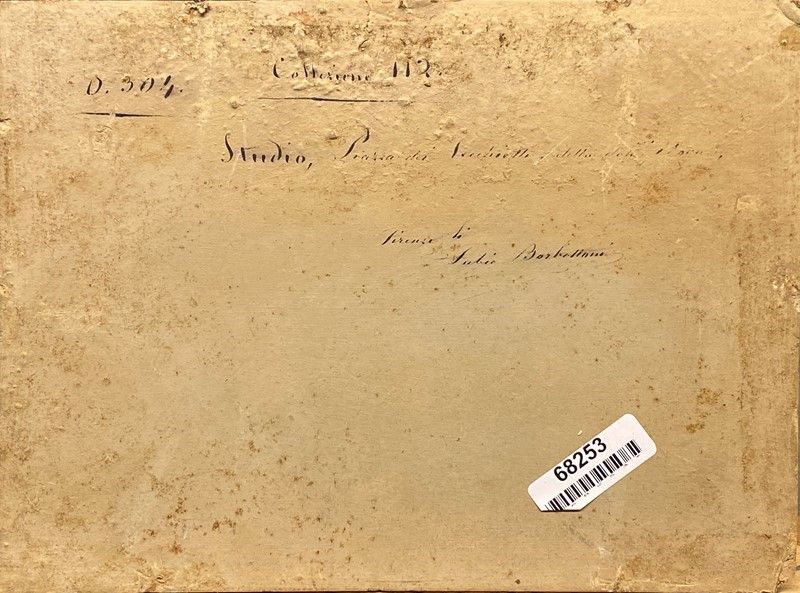 O. 304.
Collezione 112.
Studio, Piazza dei Vecchietti, detta
Firenze li
Fabio Borbottoni
68253